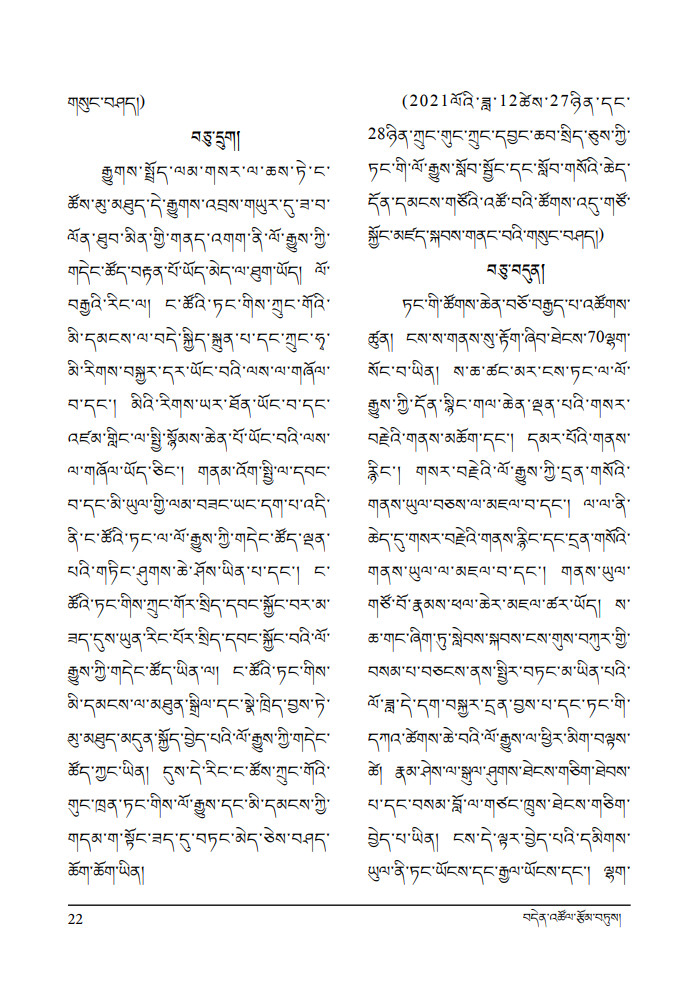 གསུང་བཤད།)
བཅུ་དྲུག།
རྒྱུགས་སྤྲོད་ལམ་གསར་ལ་ཆས་ཏེ་ང་
ཚོས་མུ་མཐུད་དེ་རྒྱུགས་འབྲས་གཡུར་དུ་ཟ་བ་
ལོན་ཐུབ་མིན་གྱི་གནད་འགག་ནི་ལོ་རྒྱུས་ཀྱི་
གདེང་ཚོད་བརྟན་པོ་ཡོད་མེད་ལ་ཐུག་ཡོད། ལོ་
བརྒྱའི་རིང་ལ། ང་ཚོའི་ཏང་གིས་ཀྲུང་གོའི་
མི་དམངས་ལ་བདེ་སྐྱིད་སྐྲུན་པ་དང་ཀྲུང་ཧྭ་
མི་རིགས་བསྐྱར་དར་ཡོང་བའི་ལས་ལ་གཞོལ་
བ་དང་། མིའི་རིགས་ཡར་ཐོན་ཡོང་བ་དང་
འཛམ་གླིང་ལ་སྤྱི་སྙོམས་ཆེན་པོ་ཡོང་བའི་ལས་
ལ་གཞོལ་ཡོད་ཅིང་། གནམ་འོག་སྤྱི་ལ་དབང་
བ་དང་མི་ཡུལ་གྱི་ལམ་བཟང་ཡང་དག་པ་འདི་
ནི་ང་ཚོའི་ཏང་ལ་ལོ་རྒྱུས་ཀྱི་གདེང་ཚོད་ལྡན་
པའི་གཏིང་ཤུགས་ཆེ་ཤོས་ཡིན་པ་དང་། ང་
ཚོའི་ཏང་གིས་ཀྲུང་གོར་སྲིད་དབང་སྐྱོང་བར་མ་
ཟད་དུས་ཡུན་རིང་པོར་སྲིད་དབང་སྐྱོང་བའི་ལོ་
རྒྱུས་ཀྱི་གདེང་ཚོད་ཡིན་ལ། ང་ཚོའི་ཏང་གིས་
མི་དམངས་ལ་མཐུན་སྒྲིལ་དང་སྣེ་ཁྲིད་བྱས་ཏེ་
མུ་མཐུད་མདུན་སྐྱོད་བྱེད་པའི་ལོ་རྒྱུས་ཀྱི་གདེང་
ཚོད་ཀྱང་ཡིན། དུས་དེ་རིང་ང་ཚོས་ཀྲུང་གོའི་
གུང་ཁྲན་ཏང་གིས་ལོ་རྒྱུས་དང་མི་དམངས་ཀྱི་
གདམ་ག་སྟོང་ཟད་དུ་བཏང་མེད་ཅེས་བཤད་
ཆོག་ཆོག་ཡིན།
(2021ལོའི་ཟླ་12ཚེས་27ཉིན་དང་
28ཉིན་ཀྲུང་གུང་ཀྲུང་དབྱང་ཆབ་སྲིད་ཅུས་ཀྱི་
ཏང་གི་ལོ་རྒྱུས་སློབ་སྦྱོང་དང་སློབ་གསོའི་ཆེད་
དོན་དམངས་གཙོའི་འཚོ་བའི་ཚོགས་འདུ་གཙོ་
སྐྱོང་མཛད་སྐབས་གནང་བའི་གསུང་བཤད།)
བཅུ་བདུན།
ཏང་གི་ཚོགས་ཆེན་བཅོ་བརྒྱད་པ་འཚོགས་
ཚུན། ངས་ས་གནས་སུ་རྟོག་ཞིབ་ཐེངས་70ལྷག་
སོང་བ་ཡིན། ས་ཆ་ཚང་མར་ངས་ཏང་ལ་ལོ་
རྒྱུས་ཀྱི་དོན་སྙིང་གལ་ཆེན་ལྡན་པའི་གསར་
བརྗེའི་གནས་མཆོག་དང་། དམར་པོའི་གནས་
རྙིང་། གསར་བརྗེའི་ལོ་རྒྱུས་ཀྱི་དྲན་གསོའི་
གནས་ཡུལ་བཅས་ལ་མཇལ་བ་དང་། ལ་ལ་ནི་
ཆེད་དུ་གསར་བརྗེའི་གནས་རྙིང་དང་དྲན་གསོའི་
གནས་ཡུལ་ལ་མཇལ་བ་དང་། གནས་ཡུལ་
གཙོ་བོ་རྣམས་ཕལ་ཆེར་མཇལ་ཚར་ཡོད། ས་
ཆ་གང་ཞིག་ཏུ་སླེབས་སྐབས་ངས་གུས་བཀུར་གྱི་
བསམ་པ་བཅངས་ནས་སྤྱིར་བཏང་མ་ཡིན་པའི་
ལོ་ཟླ་དེ་དག་བསྐྱར་དྲན་བྱས་པ་དང་ཏང་གི་
དཀའ་ཚེགས་ཆེ་བའི་ལོ་རྒྱུས་ལ་ཕྱིར་མིག་བལྟས་
ཚེ། རྣམ་ཤེས་ལ་སྐུལ་ཤུགས་ཐེངས་གཅིག་ཐེབས་
པ་དང་བསམ་བློ་ལ་གཙང་ཁྲུས་ཐེངས་གཅིག་
བྱེད་པ་ཡིན། ངས་དེ་ལྟར་བྱེད་པའི་དམིགས་
ཡུལ་ནི་ཏང་ཡོངས་དང་རྒྱལ་ཡོངས་དང་། ལྷག་
22
བདེན་འཚོལ་རྩོམ་བཏུས།